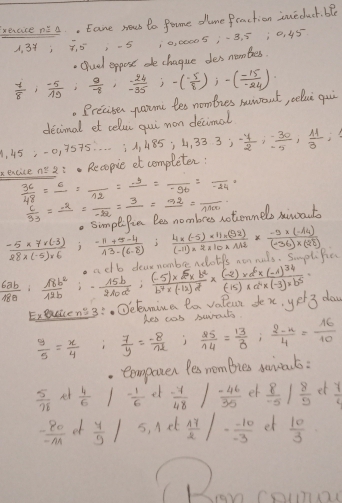 Exercice n°1 . Ecrire sous la forme d'une fraction irréductible
1,37 ; 7,5 ; -5 ; 0,00005 ; -3,5 ; 0,45
• Quel opposé de chaque des nombres.
7/8 ; -5/19 ; 9/8 ; -24/-35 ; -(-5/8) ; -(-15/-24) .
• Préciser parmi les nombres suivant, celui qui
décimal et celui qui non décimal
1,45 ; -0,7575.... ; 1,485 ; 4,333 ; -7/2 ; -30/-5 ; 11/3 ;
Exercice n°2 : • Recopie et compléter :
36/48 = 6/ = /12 = -9/ = /-96 = /-24 .
6/33 = -2/ = /-22 = 3/ = 32/ = /1100
• Simplifie les nombres rationnels suivants
-5×7×(-3) / 28×(-5)×6 ; -11+5-4 / 13-(6-8) ; 4×(-5)×11×(92) / (-11)×2×10×112 × -9×(-14) / (-36)×(28)
• a et b deux nombre relatifs non nuls. Simplifier
63b/189 ; 18b²/12b ; -15b/210
Exercice n°3 : • Détermine la valeur de x, y et z dans
les cas suivants.
9/5 = x/4 ; 7/y = -8/12 ; 25/14 = 13/ ; 2-x/4 = 16/10
• Comparer les nombres suivants :
5/18 et 4/6 / -1/6 et -7/48 / -46/35 et 8/-5 / 8/9 et 7/
-80/-11 et 7/9 / 5,1 et 17/2 / -10/-3 et 10/3 .
Bon courage